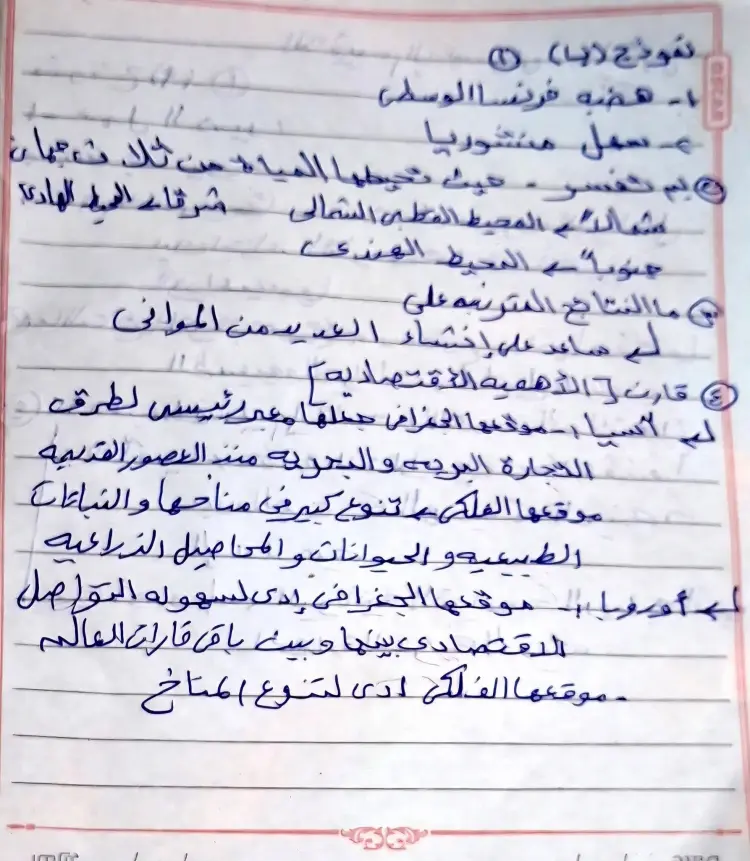 نموذج (ب) ①
١- هضبه فرنسا الوسطى
٢- سهل منشوريا
② بم تفسر - حيث تحيطها المياة من ثلاث جهات
شمالاً المحيط القطبى الشمالى شرقا المحيط الهادى
جنوباً المحيط الهندى
③ ما النتائج المترتبه على
ساعد على إنشاء العديد من الموانى
④ قارن [الأهمية الأقتصاديه]
آسيا :- موقعها الجغرافى جعلها معبر رئيسى لطرق
التجارة البريه والبحريه منذ العصور القديمه
موقعها الفلكى تنوع كبير فى مناخها والنباتات
الطبيعيه والحيوانات والمحاصيل الزراعيه
أوروبا :- موقعها الجغرافى إدى لسهوله التواصل
الاقتصادى بينها وبين باقى قارات العالم
- موقعها الفلكى ادى لتنوع المناخ